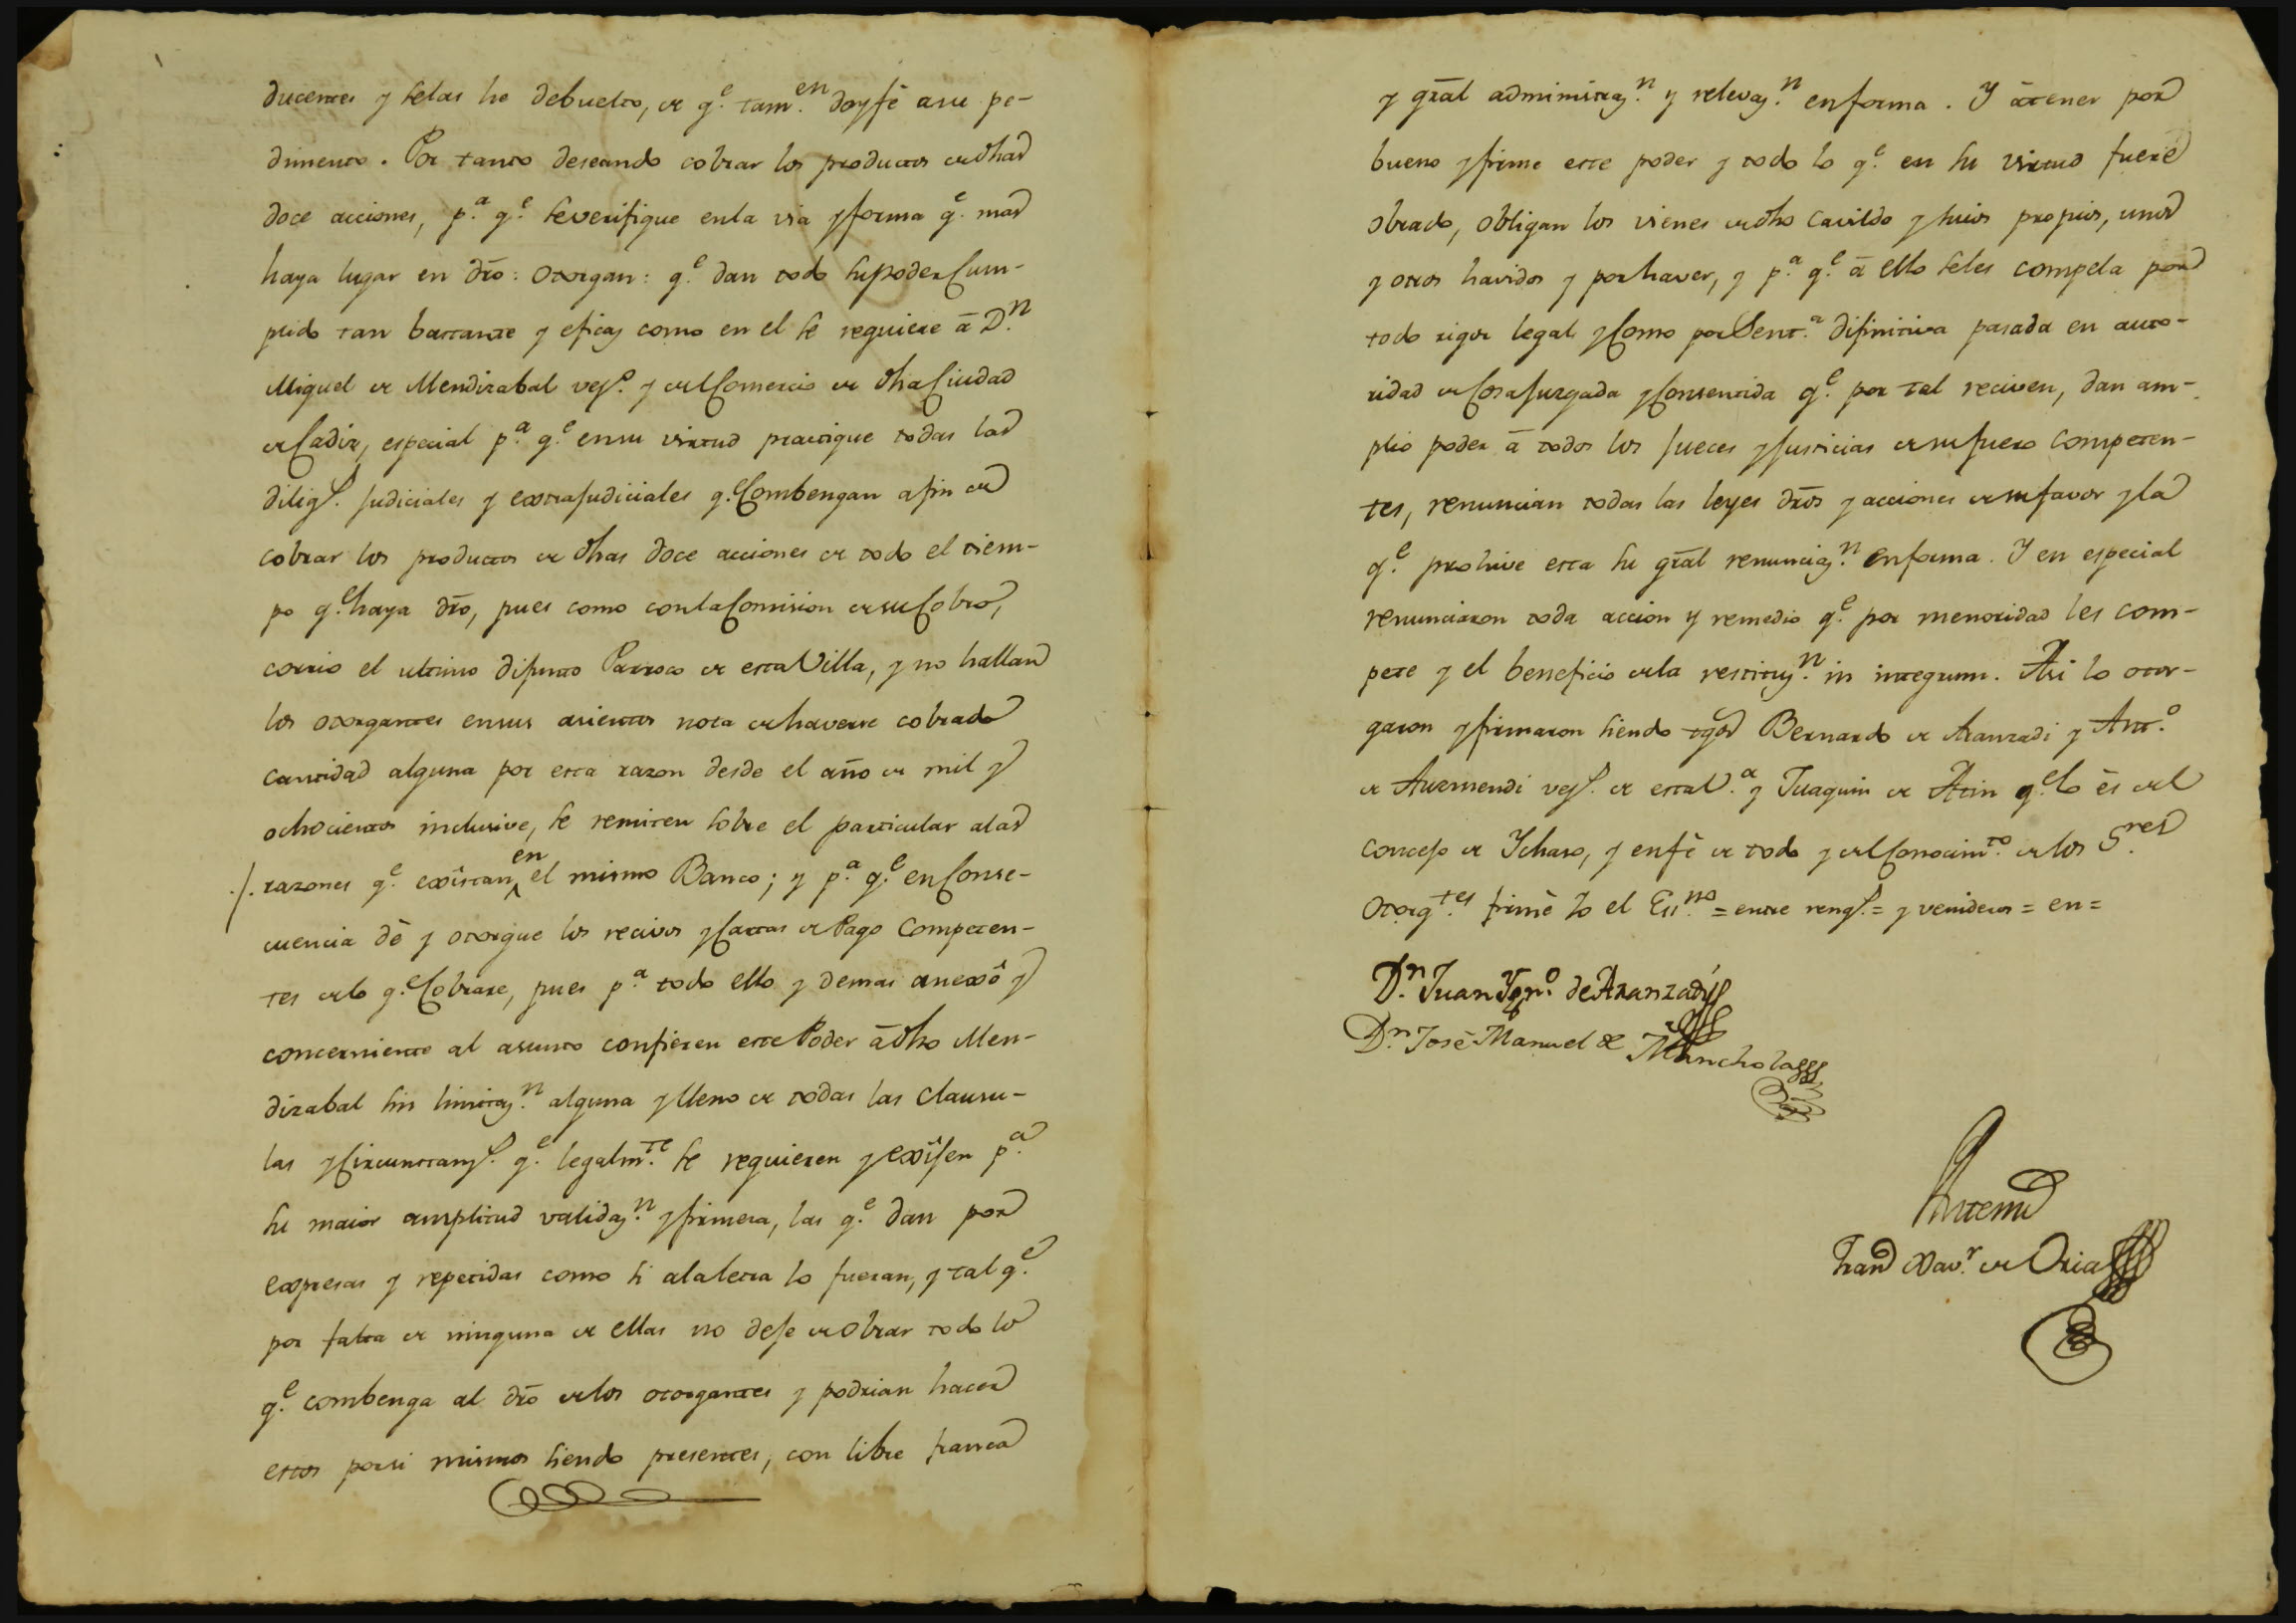 ducentes y selas he debuelto, de q.e tam.en doyfè asu pe-
dimento. Por tanto deseando cobrar los productos de dhas
doce acciones, p.a q.e severifique enla via y forma q.e mas
haya lugar en dro: otorgan: q.e dan todo supoder Cum-
plido tan bastante y eficaz como en el se requiere â D.n
Miguel de Mendizabal vez.o y del Comercio de dha Ciudad
de Cadiz, especial p.a q.e ensu virtud practique todas las
dilig.s Judiciales y extrajudiciales q.e Combengan afin de
cobrar los productos de dhas doce acciones de todo el tiem-
po q.e haya dro, pues como conla Comision de su Cobro,
corrio el ultimo difunto Parroco de esta Villa, y no hallan
los otorgantes ensus asientos nota de haverse cobrado
cantidad alguna por esta razon desde el año de mil y
ochocientos inclusive, se remiten sobre el particular alas
./. razones q.e exîstan en el mismo Banco; y p.a q.e en Conse-
cuencia dè y otorgue los recivos y Cartas de Pago Competen-
tes delo q.e Cobrare, pues p.a todo ello y demas anexô y
concerniente al asunto confieren este Poder â dho Men-
dizabal sin limitaz.n alguna y lleno de todas las Clausu-
las y Circunstanz.s q.e legalm.te se requieren y exîjen p.a
su maior amplitud validaz.n y firmeza, las q.e dan por
expresas y repetidas como si alaletra lo fueran, y tal q.e
por falta de ninguna de ellas no deje de obrar todo lo
q.e combenga al dro delos otorgantes y podrian hacer
estos porsi mismos siendo presentes, con libre franca
y gral administraz.n y relevaz.n enforma. Y âtener por
bueno y firme este poder y todo lo q.e en su virtud fuere
obrado, obligan los vienes de dho Cavildo y suios propios, unos
y otros havidos y por haver, y p.a q.e â ello seles compela por
todo rigor legal y Como por Sent.a difinitiva pasada en auto-
ridad de Cosa Juzgada y Consentida q.e por tal reciven, dan am-
plio poder â todos los Jueces y Justicias de su fuero Competen-
tes, renuncian todas las leyes dros y acciones de su favor y la
q.e prohive esta su gral renunciaz.n enforma. Y en especial
renunciaron toda accion y remedio q.e por menoridad les com-
pete y el beneficio dela restituz.n in integrum. Asi lo otor-
garon y firmaron siendo tgos Bernardo de Aranzadi y Ant.o
de Auzmendi vez.s de esta V.a y Juaquin de Atin q.e lo ès del
Concejo de Ychaso, y enfè de todo y del Conocim.to delos S.res
Otorg.tes firmè Yo el Ess.no = entre reng.s = y venideros = en =
D.n Juan Ygn.o de Aranzadi
D.n Josè Manuel de Mancholas
Antemi
Fran.co Xav.r de Oria